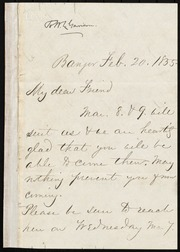 To W L Garrison
Bangor Feb. 20. 1855
My dear Friend
Mar. 8 & 9 will
suit us & we are heartily
glad that you will be
able to come then. May
nothing prevent you from
coming.
Please be sure to reach
here on Wednesday Mar 7